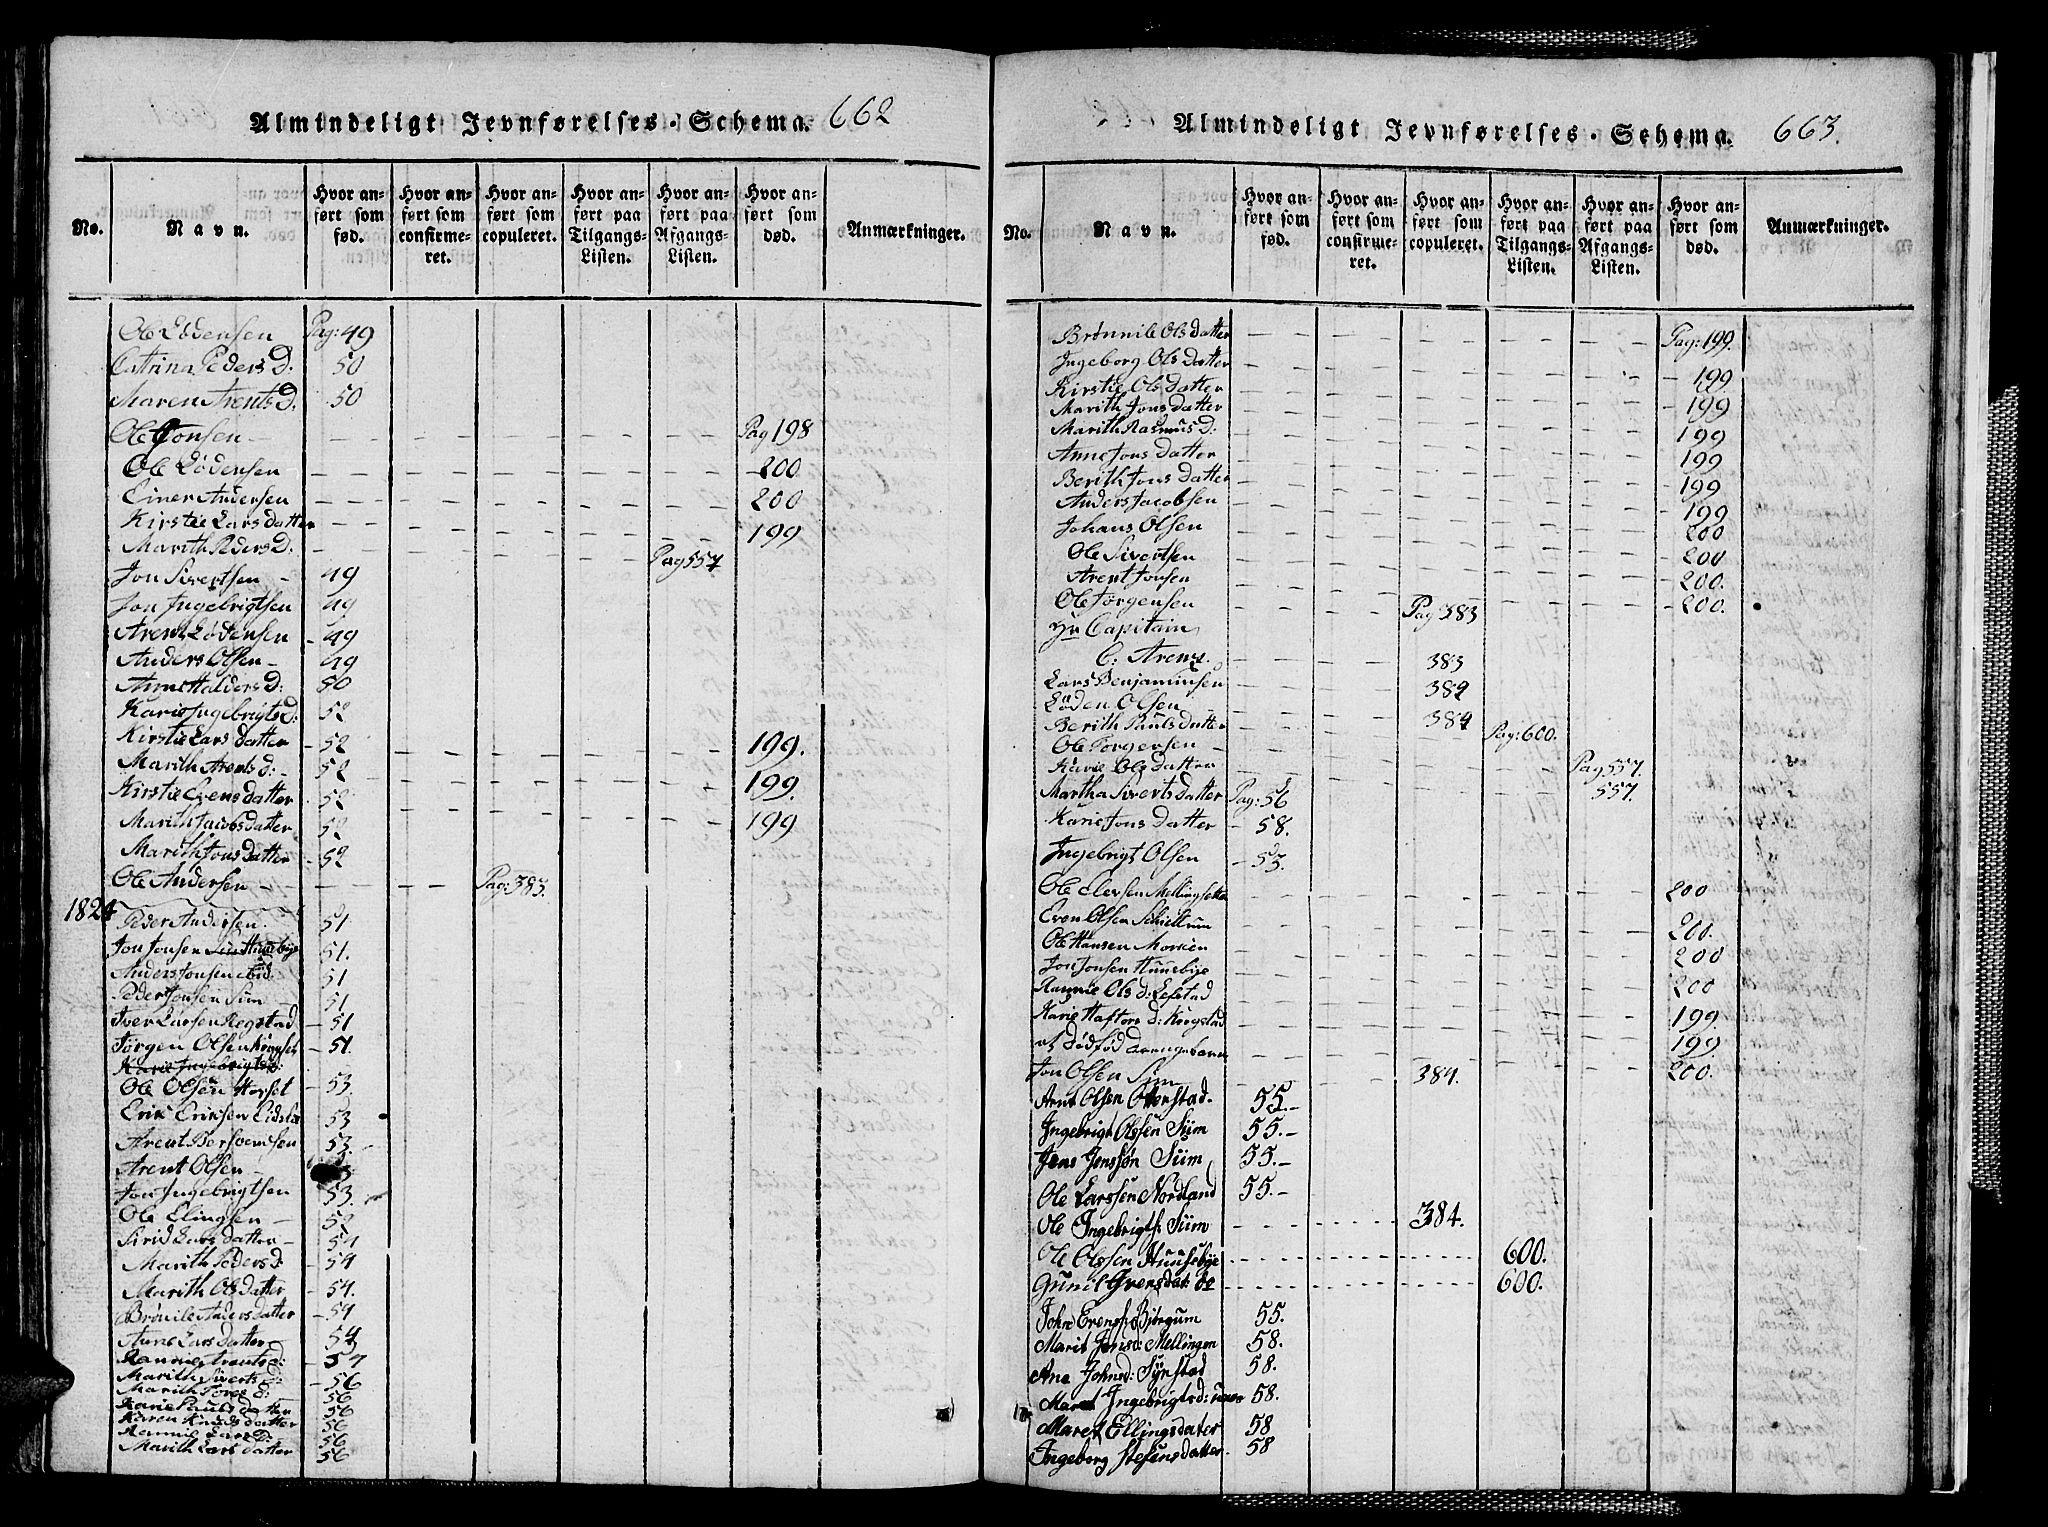 Almindeligt Jevnførelses-Schema. 662
No. Navn. Hvor anført som fød. Hvor anført som confirmeret. Hvor anført som copuleret. Hvor anført paa Tilgangs-Listen. Hvor anført paa Afgangs-Listen. Hvor anført som død. Anmærkninger.
Ole Lødensen Pag: 49
Catrina Peders D. 50
Maren Arents D. 50
Ole Jonsen Pag 198
Ole Lødensen 200
Einer Andersen 200
Kirstie Lars datter 199
Marith Peders D: Pag 557
Jon Sivertsen 49
Jon Ingebrigtsen 49
Arent Lødensen 49
Anders Olsen 49
Anne Halvers D: 50
Karie Ingebrigts d: 52
Kirstie Lars datter 52 199.
Marith Arents d: 52 199.
Kirstie Evens datter 52 199
Marith Jacobs datter 52
Marith Jons datter 52
Ole Andersen Pag: 383.
1824 Peder Andersen 51
Jon Jonsen Huusebye 51.
Anders Jonsen ibid. 51
Peder Jonsen Sim 51
Iver Larsen Regstad 51
Jørgen Olsen 51.
Karie Ingebrigts d:
Ole Olsen Horset 53.
Erik Eriksen 53
Arent 53.
Arent Olsen
Jon Ingebrigtsen 53.
Ole Elingsen 52
Sirid Lars datter 54
Marith Peders d: 54
Marith Ols datter 54.
Brønile Anders datter 54
Anne Lars datter 54
Rannie Arents d: 54
Marith Siverts d: 56
Marith Tores d: 56
Karie Pauls datter 56
Karen Knuds datter 56
Rannie Lars d: 56
Marith Lars datter 56
Almindeligt Jevnførelses-Schema. 663.
No. Navn. Hvor anført som fød. Hvor anført som confirmeret. Hvor anført som copuleret. Hvor anført paa Tilgangs-Listen. Hvor anført paa Afgangs-Listen. Hvor anført som død. Anmærkninger.
Brønnile Ols datter Pag: 199.
Ingeborg Ols datter 199
Kirstie Ols datter 199
Marith Jons datter 199
Marith Rasmus D: 199
Anne Jons datter 199
Berith Jons datter 199
Anders Jacobsen 200
Johans Olsen 200
Ole Sivertsen 200.
Arent Jonsen 200.
Ole Jørgensen Pag 383
Hr Capitain
C: Arenz. 383
Lars Benjaminsen 384
Løden Olsen 384
Berith Pauls datter Pag: 600.
Ole Torgersen Pag 557.
Karie Ols datter 557.
Martha Siverts datter Pag: 56
Karie Jons datter 58.
Ingebrigt Olsen 53.
Ole Elevsen Mellingsetter 200
Even Olsen 200.
Ole Hansen 200
Jon Jonsen Huusebye 200
Rannie Ols d: Lefstad 199
Karie Haftors d: Krogstad 199.
et Dødfød Drengebarn 200.
Jon Olsen Sim 384.
Arnt Olsen Otterstad. 55.
Ingebrigt Olssen Siim 55.
Jens Jenssøn Siim 55.
Ole Larssen Nordland 55.
Ole Ingebrigts: Siim 384.
Ole Olssen Huusebye 600.
Gunil Iversdat: do 600.
John Evens: Bjørgum 55.
Marit Jensd: Mellingen 58.
Ane Johnsd: Syrstad 58.
Maret Ingebrigtsd: 58.
Maret Ellingsdatter 58
Ingeborg Stefensdatter. 58